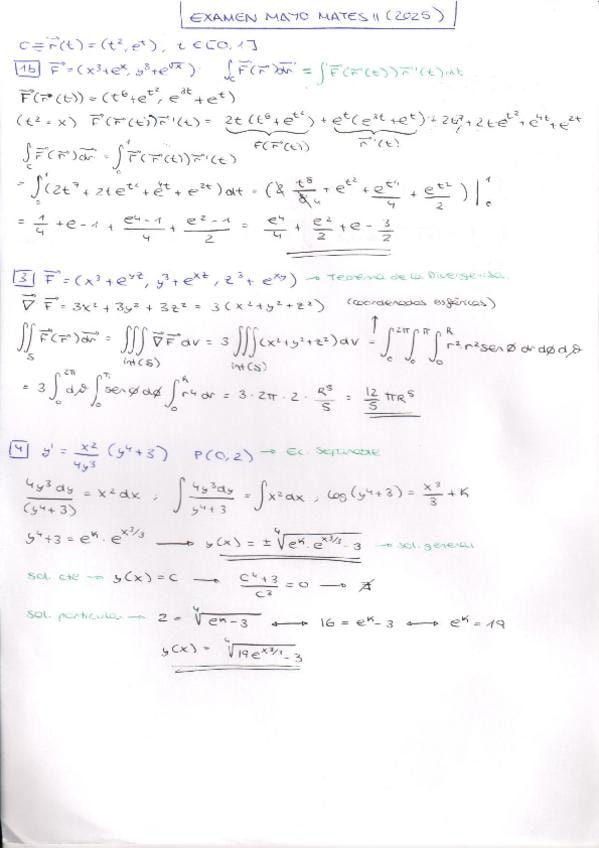 EXAMEN MAYO MATES II (2025)
C ≡ r⃗(t) = (t², eᵗ), t ∈ [0, 1]
1b F⃗ = (x³+eˣ, y³+e^√x) ∫_C F⃗(r⃗)dr⃗ = ∫F⃗(r⃗(t))r⃗'(t)dt
F⃗(r⃗(t)) = (t⁶+e^t², e^3t + e^t)
(t² = x) F⃗(r⃗(t))r⃗'(t) = 2t(t⁶+e^t²) + e^t(e^3t+e^t) = 2t⁷ + 2t·e^t² + e^4t + e^2t
F(r⃗(t)) r⃗'(t)
∫_C F⃗(r⃗)dr⃗ = ∫_0^1 F⃗(r⃗(t))r⃗'(t)
= ∫_0^1 (2t⁷ + 2te^t² + e^4t + e^2t)dt = (2 t⁸/8 4 + e^t² + e^t⁴/4 + e^t²/2)|_0^1
= 1/4 + e - 1 + (e⁴-1)/4 + (e²-1)/2 = e⁴/4 + e²/2 + e - 3/2
3 F⃗ = (x³+e^yz, y³+e^xz, z³+e^xy) → Teorema de la Divergencia
∇⃗ F⃗ = 3x² + 3y² + 3z² = 3(x²+y²+z²) (coordenadas esféricas)
∬_S F⃗(r⃗)dr⃗ = ∭_int(S) ∇⃗F⃗ dv = 3∭_int(S) (x²+y²+z²)dv = ∫_0^2π ∫_0^π ∫_0^R r² r² sen ø dr dø dϑ
= 3∫_0^2π dϑ ∫_0^π sen ø dø ∫_0^R r⁴ dr = 3·2π·2·R⁵/5 = 12/5 πR⁵
4 y' = x²/4y³ (y⁴+3) P(0,2) → Ec. Separable
4y³dy/(y⁴+3) = x²dx ; ∫ 4y³dy/y⁴+3 = ∫x²dx ; log(y⁴+3) = x³/3 + K
y⁴+3 = e^K · e^x³/3 → y(x) = ± ⁴√(e^K · e^x³/3 - 3) → sol. general
sol. cte → y(x) = C → (C⁴+3)/C³ = 0 → ∄
sol. particular → 2 = ⁴√(e^K - 3) ↔ 16 = e^K - 3 ↔ e^K = 19
y(x) = ⁴√(19e^x³/3 - 3)